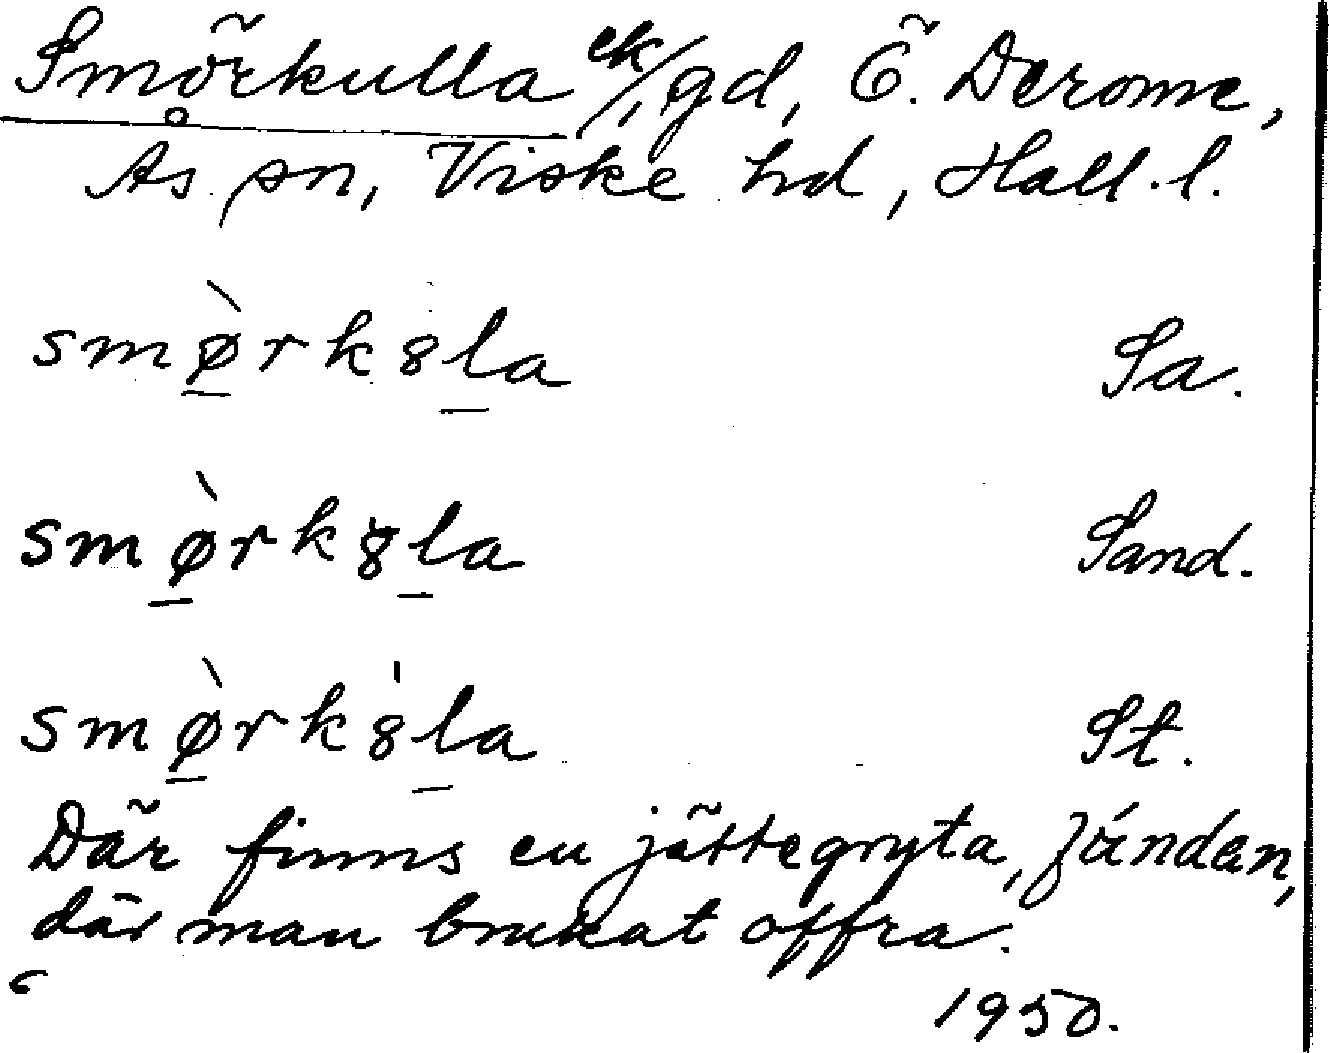 Smörkulla ek/, gd, Ö. Derome,
Ås sn, Viske hd, Hall. l.
smø̀rk8la Sa.
smø̀rk8la Sand.
smø̀rk8̍la St.
Där finns en jättegryta,
där man brukat offra.
1950.